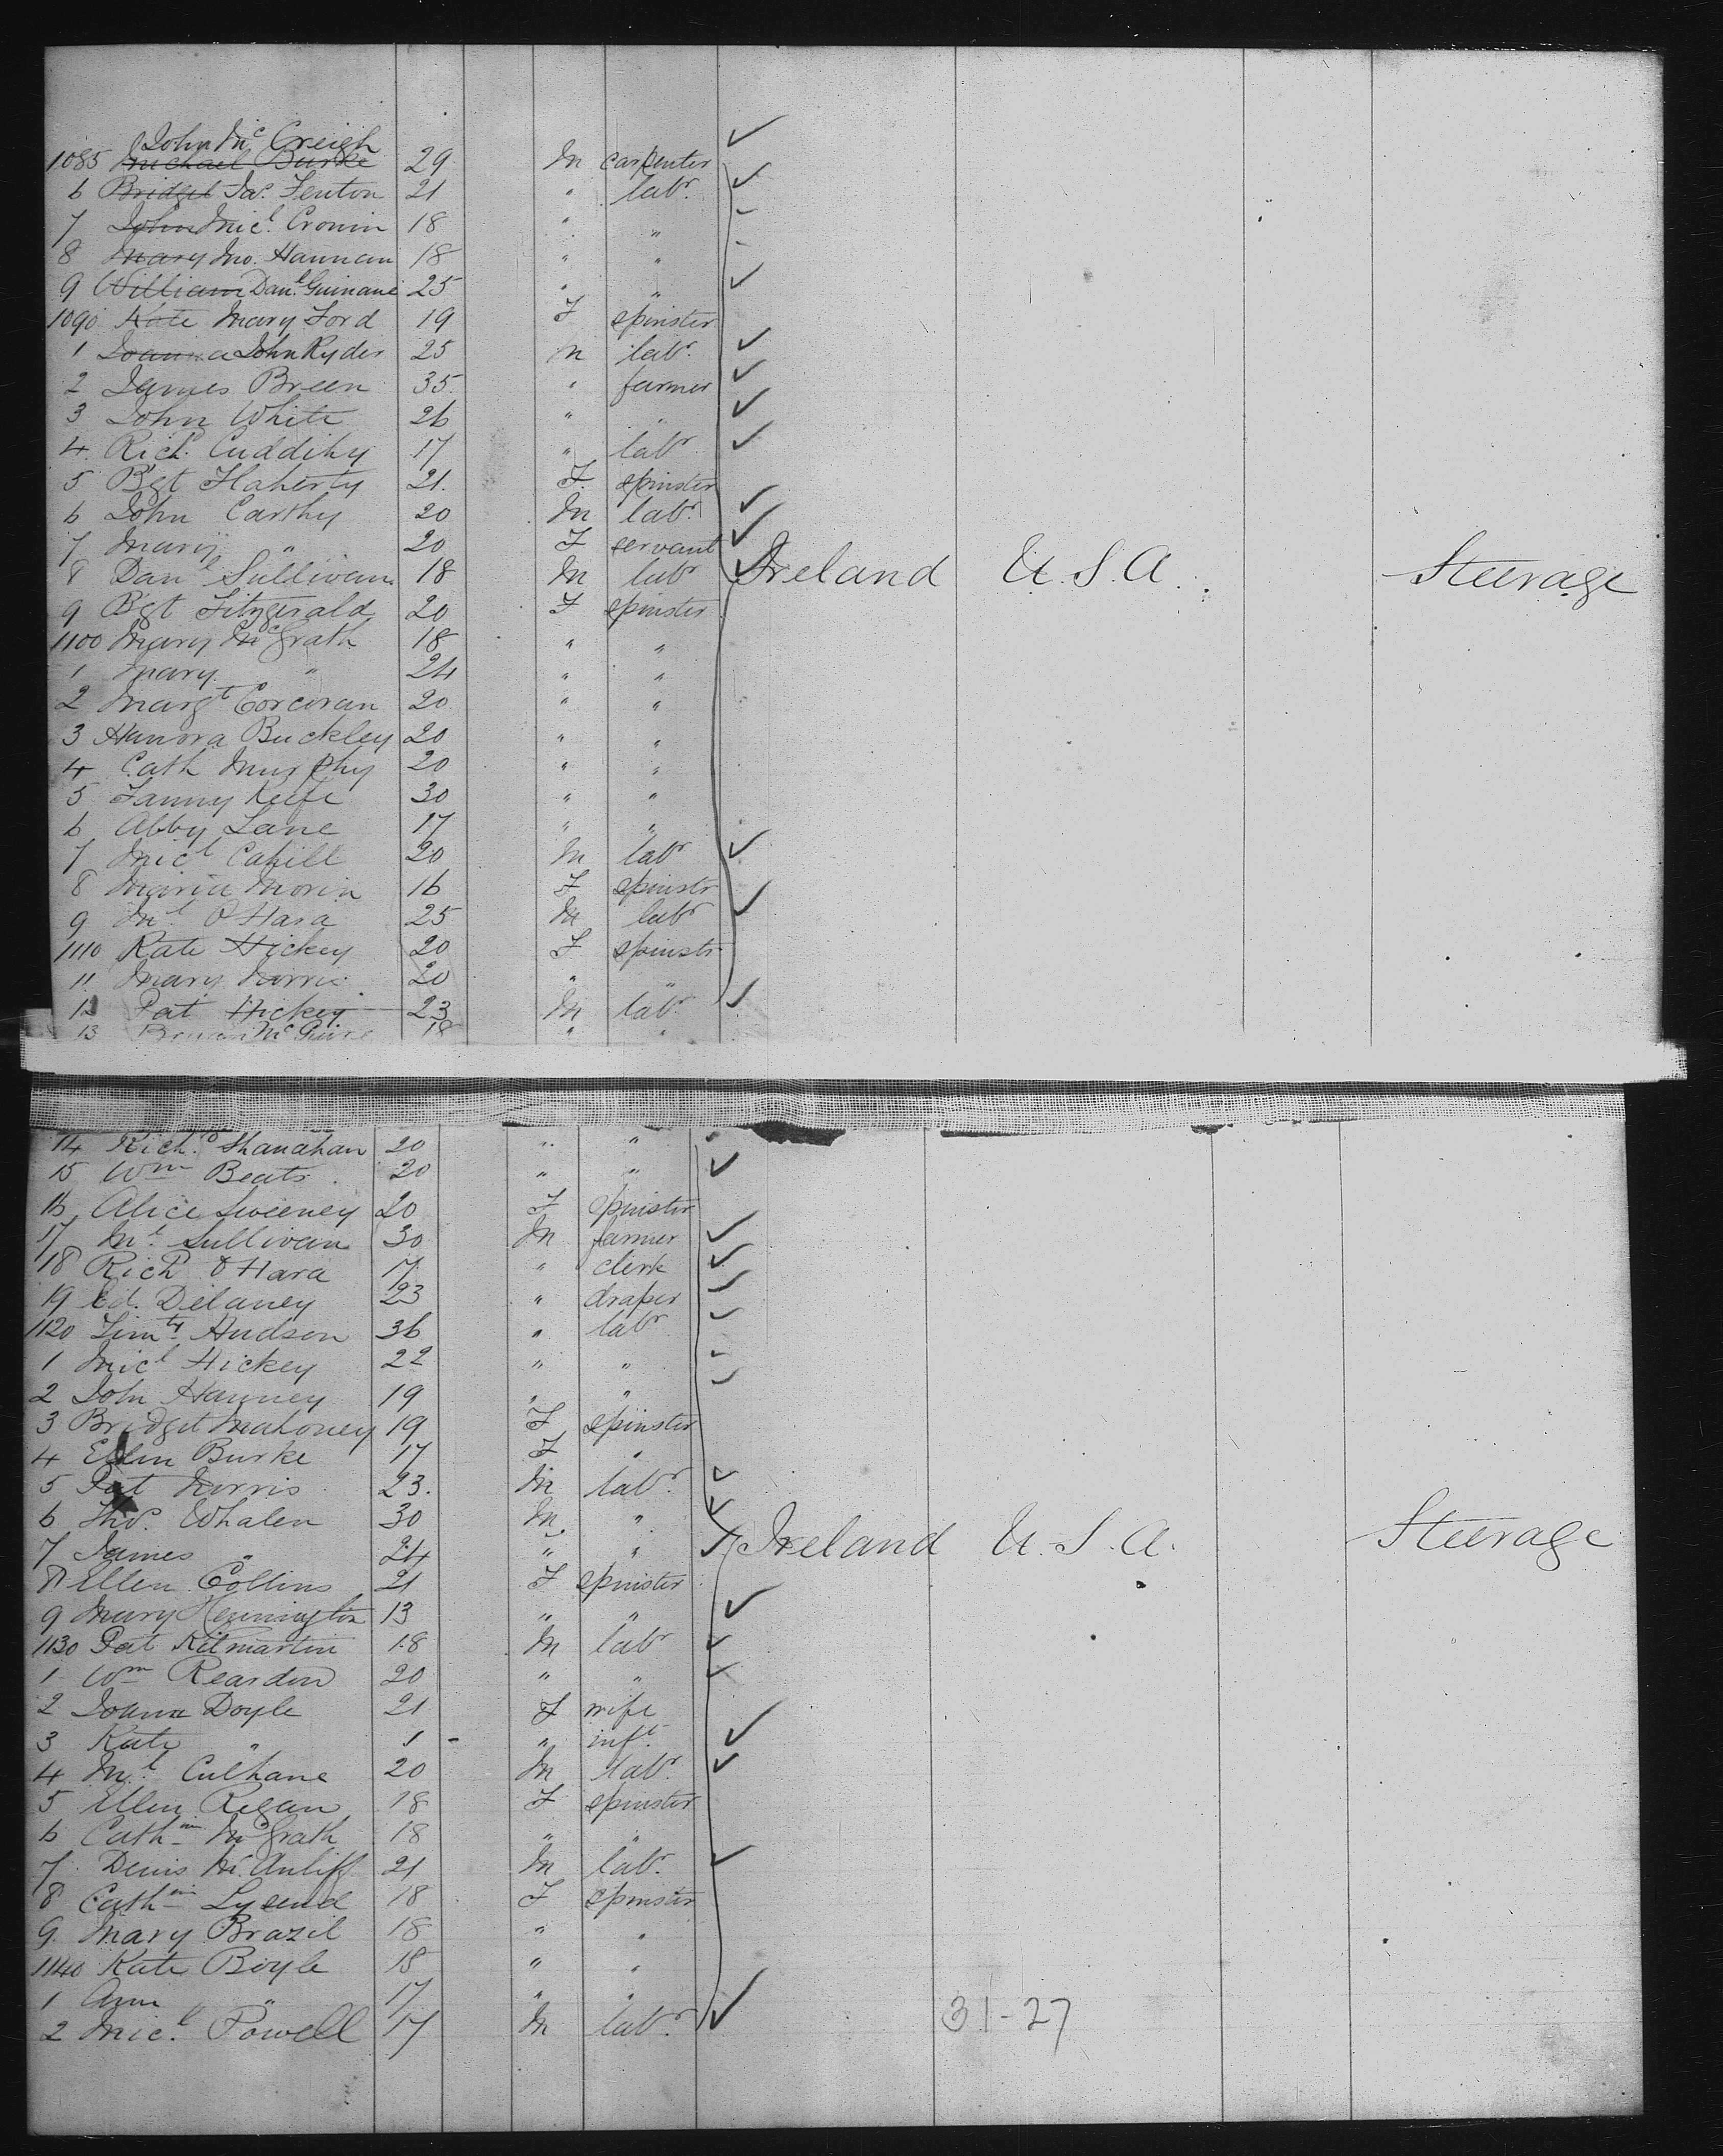 John Mc Creigh
1085 Michael Burke 29 M carpenter
6 Bridget Jas. Fenton 21 " labr.
7 John Micl. Cronin 18 " "
8 Mary Jno. Hannan 18 " "
9 William Danl. Guinane 25 " "
1090 Kate Mary Ford 19 F spinster
1 Joanna John Ryder 25 M labr.
2 James Breen 35 " farmer
3 John White 26 " "
4 Richd. Cuddihy 17 " labr
5 Bgt Flaherty 21 F. spinster
6 John Carthy 20 M labr.
7 Mary " 20 F servant
8 Danl Sullivan 18 M labr Ireland U.S.A. Steerage
9 Bgt Fitzgerald 20 F spinster
1100 Mary McGrath 18 " "
1 Mary " 24 " "
2 Margt Corcoran 20 " "
3 Hanora Buckley 20 " "
4 Cath Murphy 20 " "
5 Fanny Keefe 30 " "
6 Abby Lane 17 " "
7 Micl Cahill 20 M labr
8 Maria Morin 16 F spinstr
9 Ml O'Hara 25 M labr
1110 Kate Hickey 20 F spinstr
11 Mary Norris 20 " "
12 Pat Hickey 23 M labr
13 Bryan McGuire 18 " "
14 Richd. Shanahan 20 " "
15 Wm Beats 20 " "
16 Alice Sweeney 20 F spinster
17 Ml. Sullivan 30 M farmer
18 Richd O'Hara 17 " clerk
19 Ed. Delaney 23 " draper
1120 Timty. Hudson 36 " labr
1 Micl Hickey 22 " "
2 John Hanney 19 " "
3 Bridget Mahoney 19 F spinster
4 Ellen Burke 17 F "
5 Pat Norris 23. M labr.
6 Thos. Whalen 30 M "
7 James " 24 " " Ireland U.S.A. Steerage
8 Ellen Collins 21 F spinster
9 Mary Hennington 13 " "
1130 Pat Kilmartin 18 M labr
1 Wm Reardon 20 " "
2 Joana Doyle 21 F wife
3 Kate " 1 - " inft.
4 Ml. Culhane 20 M labr.
5 Ellen Regan 18 F spinster
6 Cathne McGrath 18 " "
7 Denis Mc.Auliff 21 M labr.
8 Cathne 18 F spinster
9 Mary Brazil 18 " "
1140 Kate Boyle 18 " "
1 Ann " 17 " "
2 Micl. Powell 17 M labr.
31-27